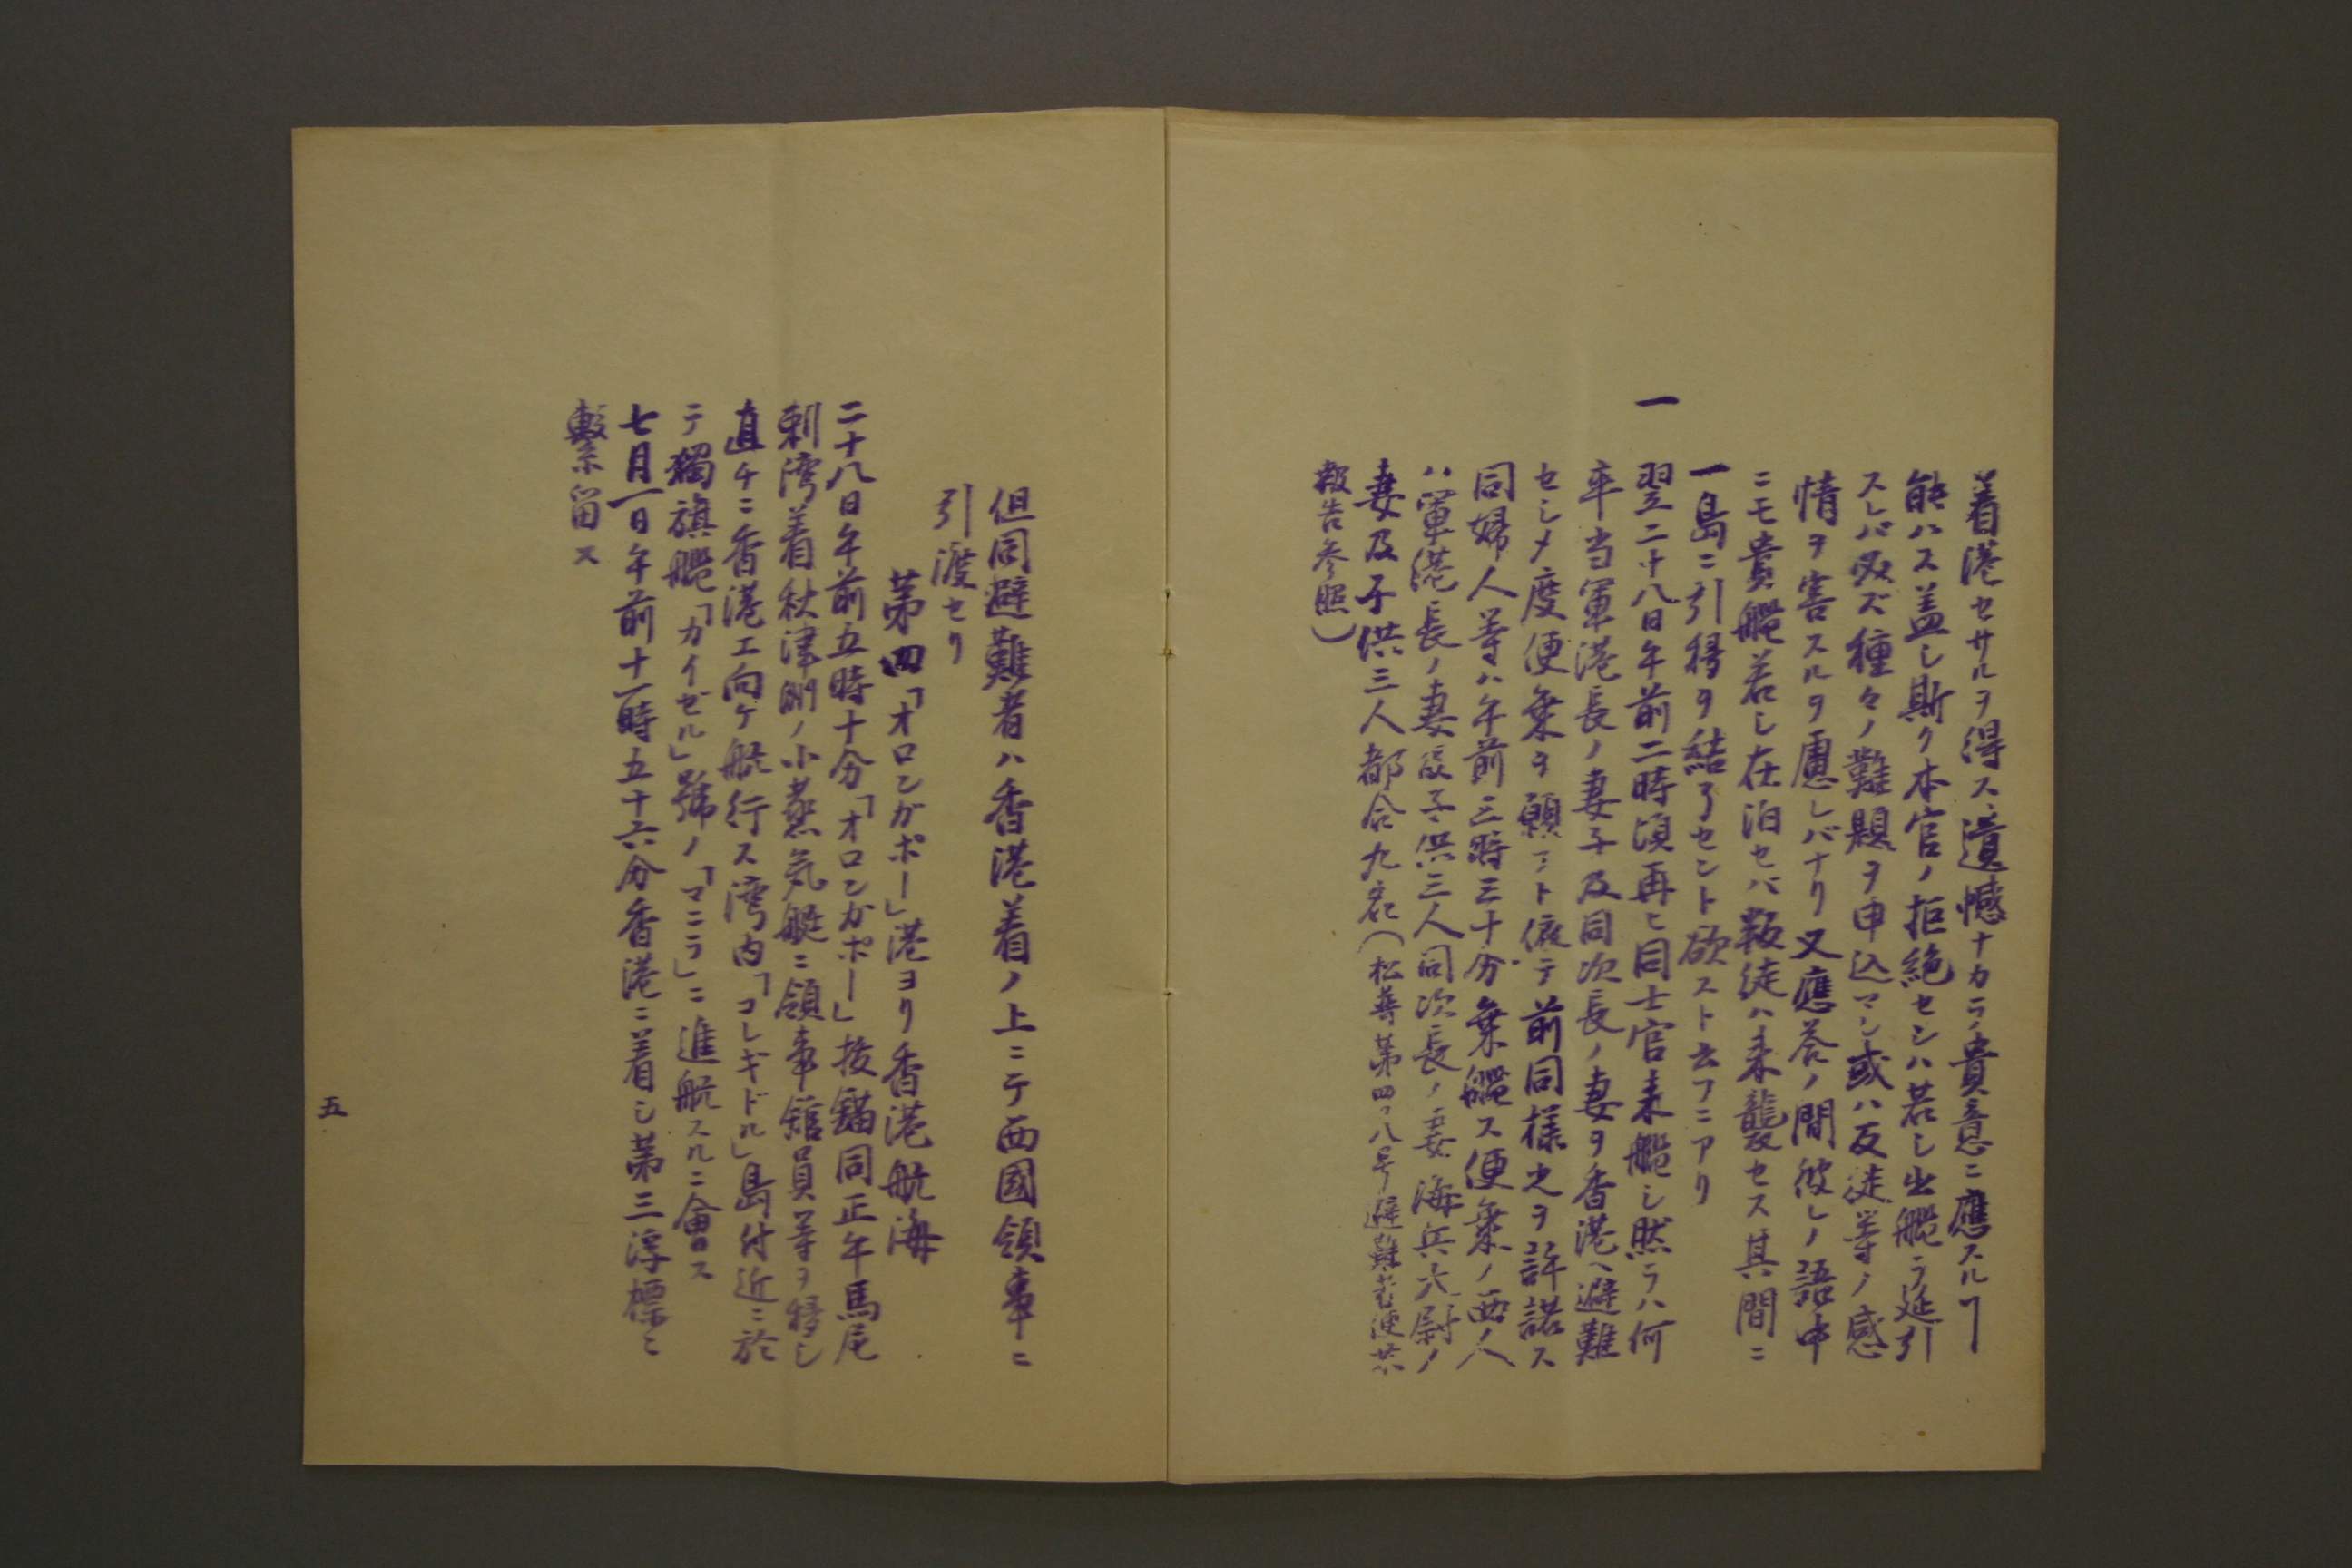 着港セサルヲ得ス、遺憾ナカラ貴意ニ應スルヿ
能ハス盖シ斯ク本官ノ拒絶セシハ若シ出艦ヲ延引
スレバ必ズ種々ノ難題ヲ申込マレ或ハ反徒等ノ感
情ヲ害スルヲ慮レバナリ又應答ノ間彼レノ語中
ニモ貴艦若シ在泊セバ叛徒ハ来襲セス其間ニ
一島ニ引揚ヲ結了セント欲スト云フニアリ
一
翌二十八日午前二時頃再ヒ同士官来艦シ然ラハ何
卒当軍港長ノ妻子及同次長ノ妻ヲ香港ヘ避難
セシメ度便乗ヲ願フト依テ前同様之ヲ許諾ス
同婦人等ハ午前三時三十分乗艦ス便乗ノ西人
ハ軍港長ノ妻及子供三人同次長ノ妻海兵大尉ノ
妻及子供三人都合九名(松普第四八号避難者便乗
報告参照)
但同避難者ハ香港着ノ上ニテ西國領事ニ
引渡セリ
第四「オロンガポー」港ヨリ香港航海
二十八日午前五時十分「オロンガポー」抜錨同正午馬尼
剌湾着秋津洲ノ小蒸気艇ニ領事館員等ヲ移シ
直チニ香港エ向ケ航行ス湾内「コレギドル」島付近ニ於
テ獨旗艦「カイゼル」號ノ「マニラ」ニ進航スルニ會ス
七月一日午前十一時五十六分香港ニ着シ第三浮標ニ
繋留ス
五